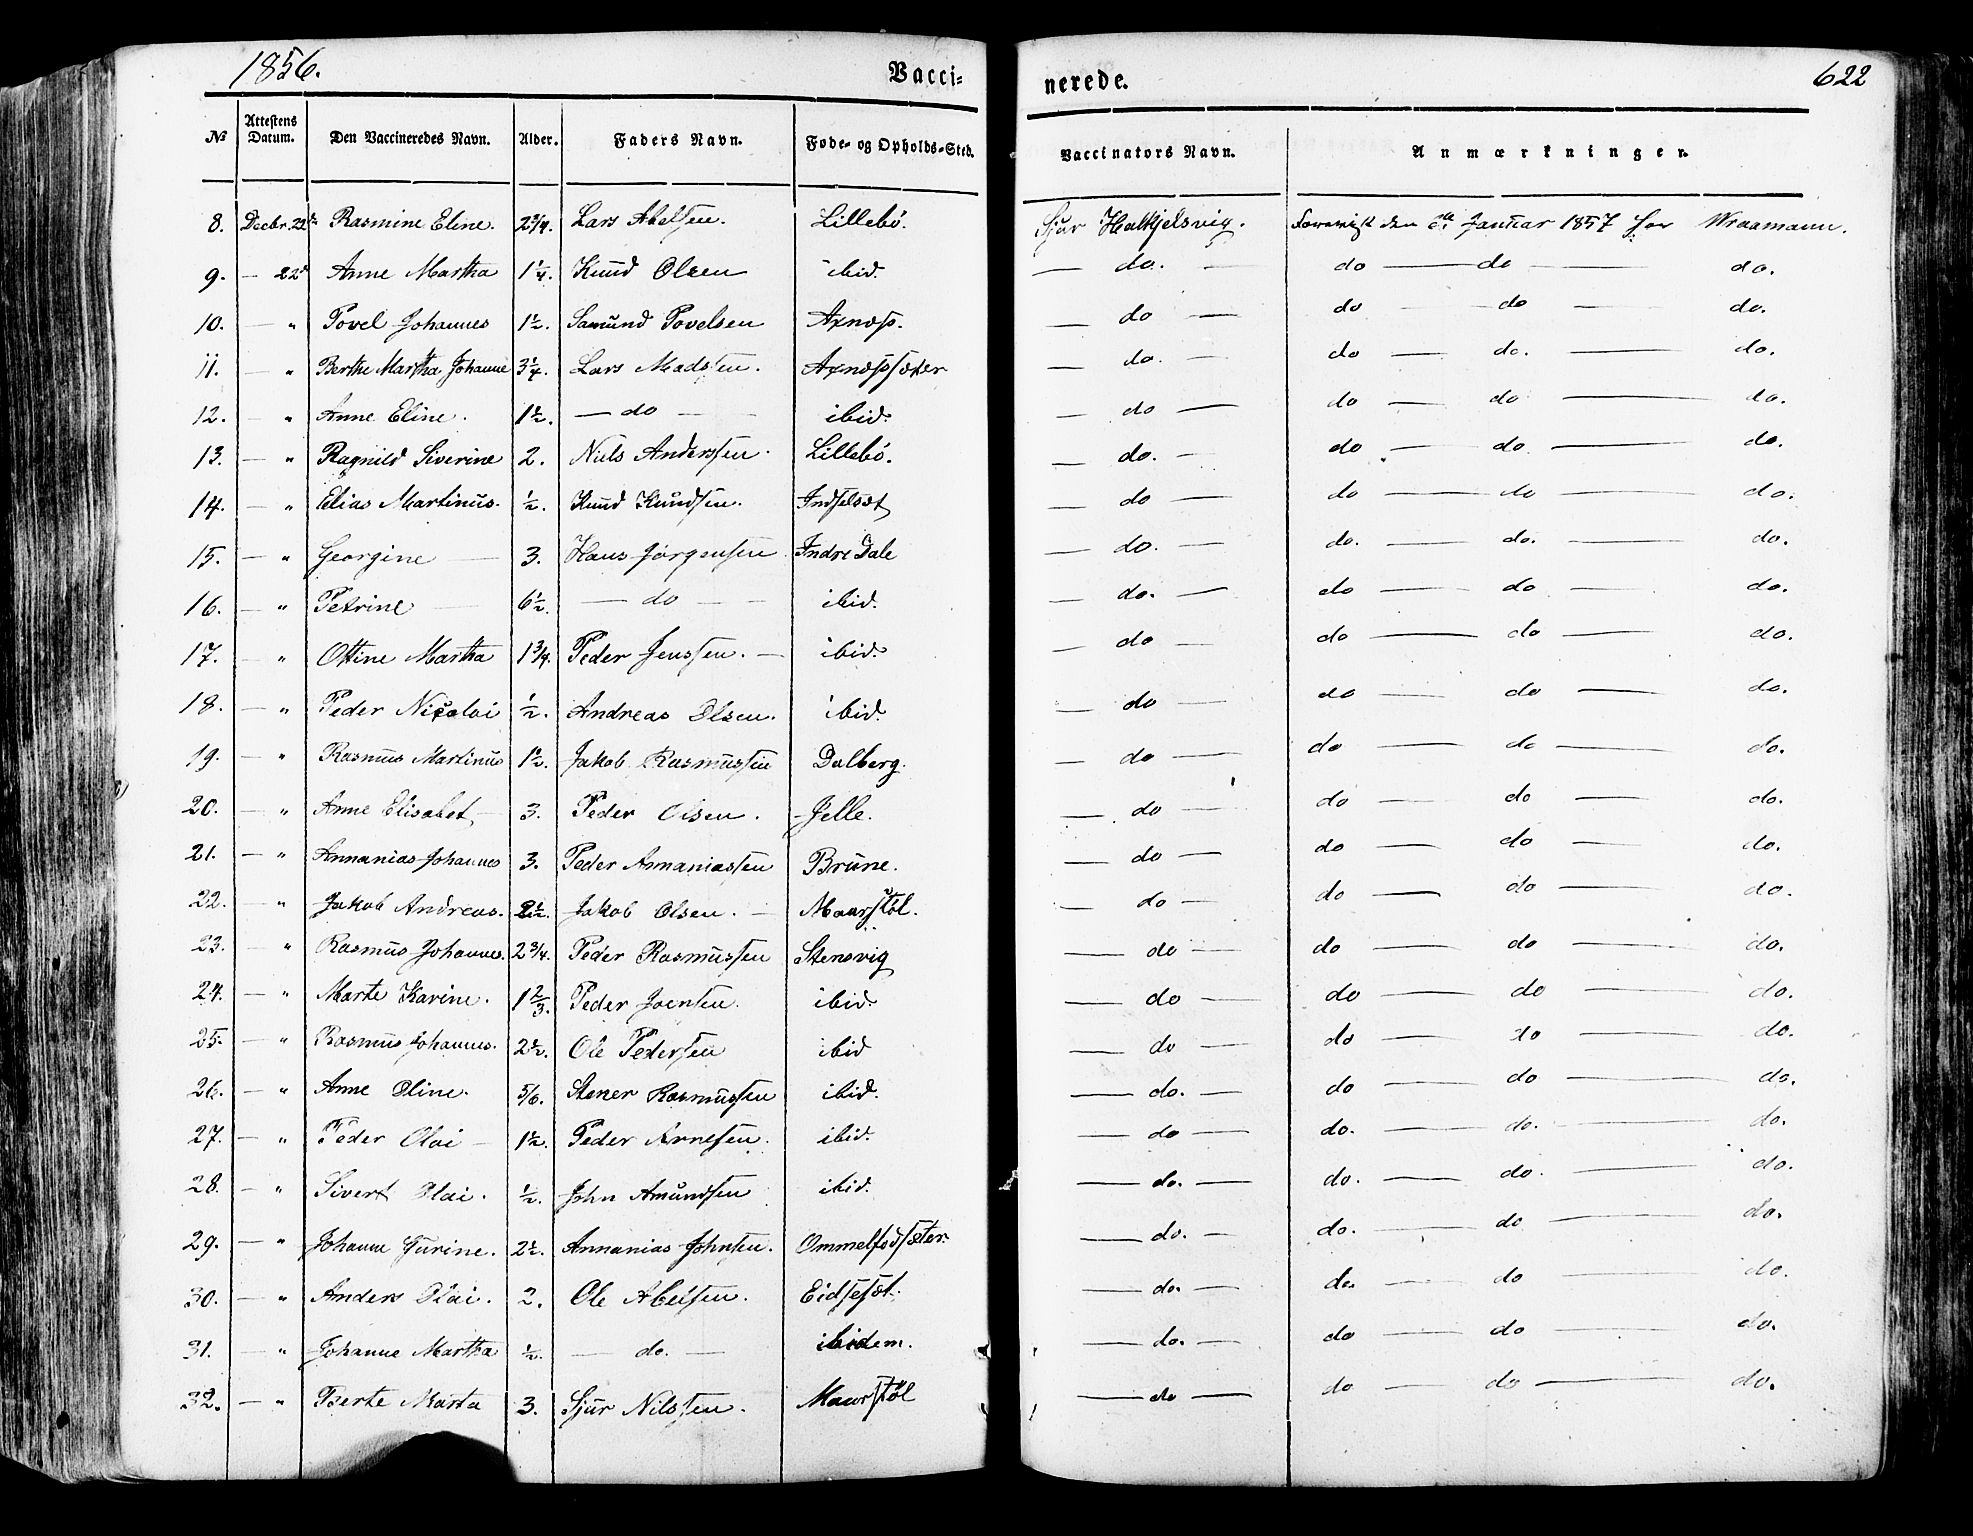 1856. Vacci- nerede. 622
No Attestens Datum. Den Vaccineredes Navn. Alder. Faders Navn. Føde- og Opholds-Sted. Vaccinators Navn. Anmærkninger.
8. Decbr. 22d Rasmine Eline. 2 3/4. Lars Abelsen. Lillebø. Sjur Halkjelsvig. Foreviist den Januar 1857 for Wraamann.
9. — 22d Anne Martha 1 1/4. Knud Olsen ibid. — do. — do — do — do.
10. — " Povel Johannes 1 1/2. Samund Povelsen Axnæs. — do — do — do — do.
11. — " Berthe Martha Johanne 3 1/4. Lars Madssen. Axnæssæter — do. — do — do. — do.
12. — " Anne Eline. 1 1/2. — do — ibid. — do — do — do — do.
13. — " Ragnild Siverine 2. Niels Anderssen. Lillebø. — do. — do — do — do.
14. — " Elias Martinus. 1/2. Knud Knudsen. Indselsæt — do — do — do — do.
15. — " Georgine — 3. Hans Jørgensen Indre Dale — do. — do. — do. — do.
16. — " Petrine — 6 1/2. — do — — ibid. — do. — do — do — do.
17. " Ottine Martha 1 3/4. Peder Jenssen. — ibid. — do — do — do — do.
18. — " Peder Nicolai 1/2. Andreas Olsen. ibid. — do — do — do — do.
19. — " Rasmus Martinus 1 1/2. Jakob Rasmussen Dalberg. — do — do — do — do.
20. — " Anne Elisabet, — 3. Peder Olsen. Jelle. — do — do — do — do.
21. — " Annanias Johannes 3. Peder Annaniassen Brune. — do — do — do — do.
22. — " Jakob Andreas. 2 1/2. Jakob Olsen. — Maurstøl. — do — do — do — do.
23. — " Rasmus Johannes. 2 3/4. Peder Rasmussen Stensvig — do — do — do — do.
24. — " Marte Karine. 1 2/3. Peder Joensen. ibid. — do — do — do — do.
25. — " Rasmus Johannes. 2 1/2. Ole Pedersen ibid — do — do — do — do.
26. — " Anne Oline. 5/6. Stener Rasmussen ibid. — do. — do — do — do.
27. — " Peder Olai — 1 1/2. Peder Arnesen. ibid. — do — do. — do. — do.
28. — " Sivert Olai. 1/2. John Amundsen ibid. — do. — do. — do. — do.
29. — " Johanne Gurine. 2 1/2. Annanias Johnsen. Ommelfodsæter. — do. — do. — do — do.
30. — " Anders Olai. 2. Ole Abelsen. Eidsesæt. — do. — do. — do — do.
31. — " Johanne Martha 1/2. — do. — ibidem. — do. — do — do — do.
32. — " Berte Marta 3. Sjur Nilssen. Maurstøl — do — do — do — do.